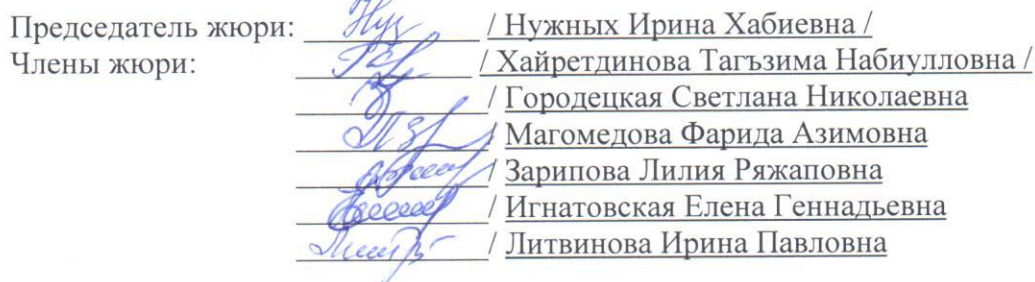 Председатель жюри: / Нужных Ирина Хабиевна /
Члены жюри: / Хайретдинова Тагъзима Набиулловна /
/ Городецкая Светлана Николаевна
/ Магомедова Фарида Азимовна
/ Зарипова Лилия Ряжаповна
/ Игнатовская Елена Геннадьевна
/ Литвинова Ирина Павловна